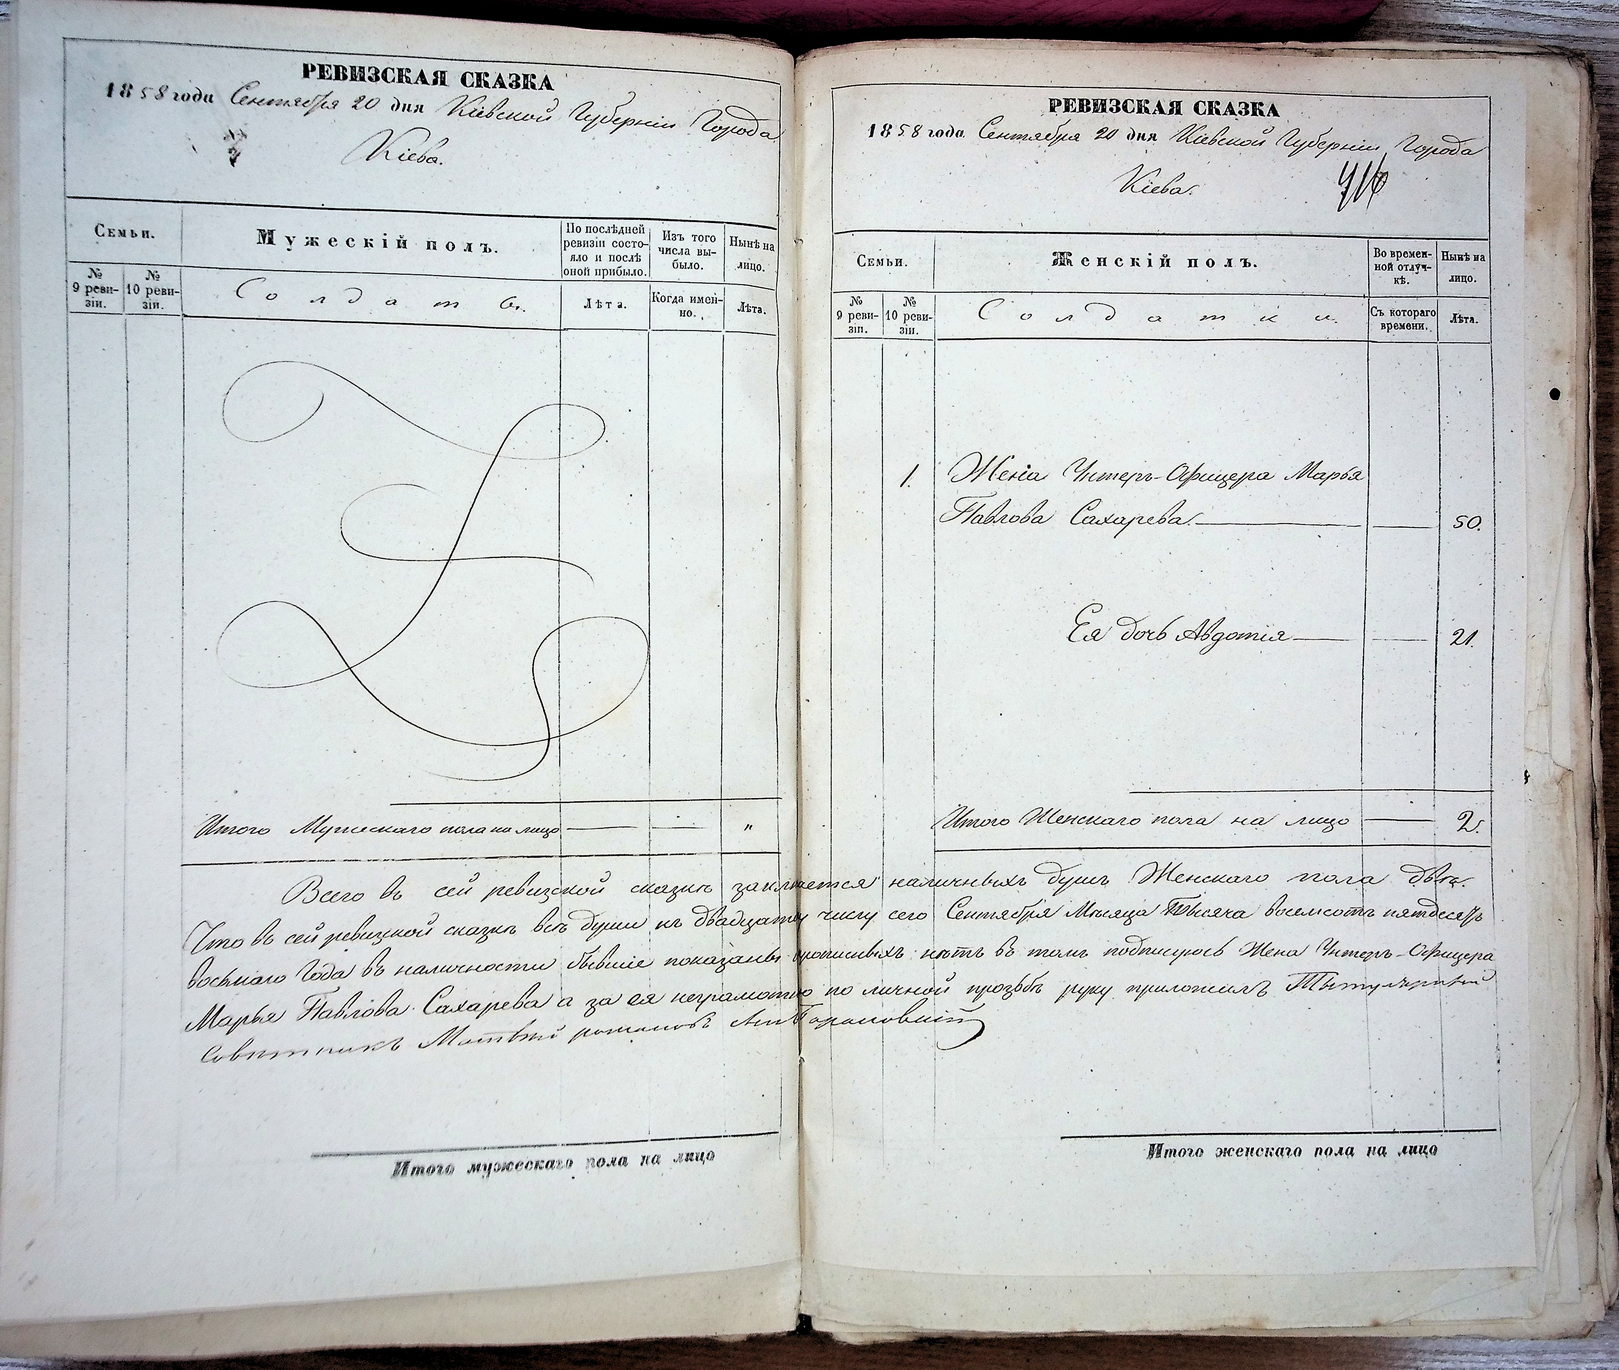 РЕВИЗСКАЯ СКАЗКА
1858 года Сентября 20 дня Кіевской Губерніи Города
Кіева.
Семьи.
Мужескій полъ.
По послѣдней ревизіи состо-
яло и послѣ оной прибыло.
Изъ того числа вы-
было.
Нынѣ на лицо.
№ 9 реви-
зіи.
№ 10 реви-
зіи.
Солдаты.
Лѣта.
Когда имен-
но.
Лѣта.
Итого Мужескаго пола на лицо — — "
Итого мужескаго пола на лицо
РЕВИЗСКАЯ СКАЗКА
1858 года Сентября 20 дня Кіевской Губерніи Города
Кіева.
Семьи.
Женскій полъ.
Во времен-
ной отлуч-
кѣ.
Нынѣ на лицо.
№ 9 реви-
зіи.
№ 10 реви-
зіи.
Солдатки.
Съ котораго времени.
Лѣта.
1. Жена Унтеръ-Офицера Марья
Павлова Сахарева. — — 50.
Ея дочь Авдотія — — 21.
Итого Женскаго пола на лицо — 2.
Всего въ сей ревизской сказкѣ заключается наличныхъ душъ Женскаго пола двѣ.
Что въ сей ревизской сказкѣ всѣ души къ двадцатому числу сего Сентября Мѣсяца Тысяча восемсотъ пятдесятъ
восьмаго Года въ наличности бывшіе показаны прописныхъ нѣтъ въ томъ подписуюсь Жена Унтеръ-Офицера
Марья Павлова Сахарева а за ея неграмотно по личной прозьбѣ руку приложилъ Титулярный
Совѣтникъ Матвѣй романовъ
Итого женскаго пола на лицо